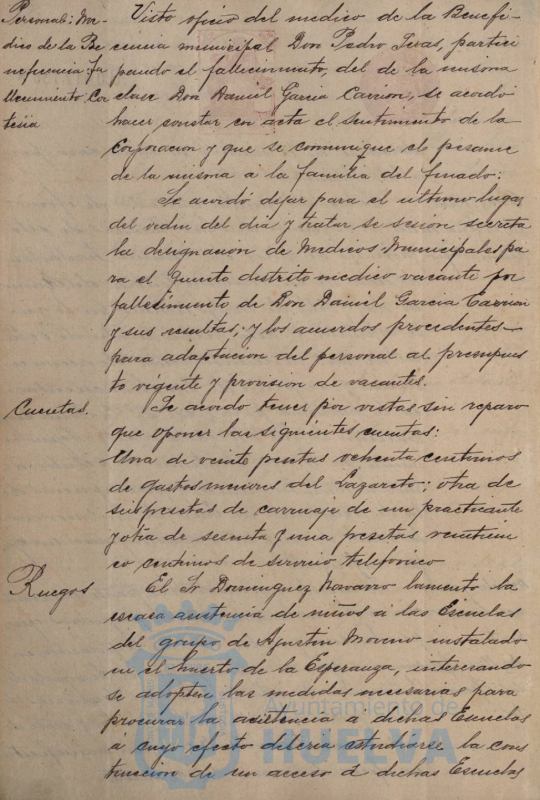 Personal: Mé-
dico de la Be
neficencia: fa
llecimiento Cor
tesia
Visto oficio del medico de la Benefi-
cencia municipal Don Pedro Seras, partici
pando el fallecimiento, del de la misma
clase Don Daniel Garcia Carrion, se acordó
hacer constar en acta el sentimiento de la
Corporacion y que se comunique el pesame
de la misma á la familia del finado:
Se acordó dejar para el ultimo lugar
del orden del dia y tratar se sesion secreta
la designacion de Medicos Municipales pa
ra el Quinto distrito medico vacante por
fallecimiento de Don Daniel Garcia Carrion
y sus resultas; y los acuerdos procedentes
para adaptacion del personal al presupues
to vigente y provision de vacantes.
Cuentas.
Se acordo tener por vistas sin reparo
que oponer las siguientes cuentas:
Una de veinte pesetas ochenta centimos
de gastos menores del Lazareto; otra de
seis pesetas de carruaje de un practicante
y otra de sesenta y una pesetas veinticin
co centimos de servicio telefonico
Ruegos
El Sr Dominguez Navarro lamentó la
escasa asistencia de niños á las Escuelas
del grupo de Agustin Moreno instalado
en el huerto de la Esperanza, interesando
se adopten las medidas necesarias para
procurar la asistencia á dichas Escuelas
á cuyo efecto deberia estudiarse la cons
truccion de un acceso á dichas Escuelas
Ayuntamiento de
HUELVA